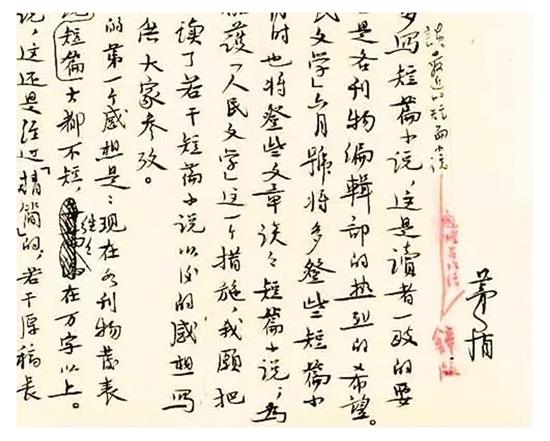 茅盾
談最近的短篇小说
多写短篇小说，这是讀者一致的要
是各刊物编輯部的热烈的希望。
民文学」六月號将多登些短篇小
时也将登些文章谈々短篇小说；为
護「人民文学」这一个措施，我願把
读了若干短篇小说以后的感想写
供大家参攷。
的第一个感想是：现在各刊物发表
短篇大都不短，往往在万字以上。
说，这还是经过「精简」的，若干原稿长